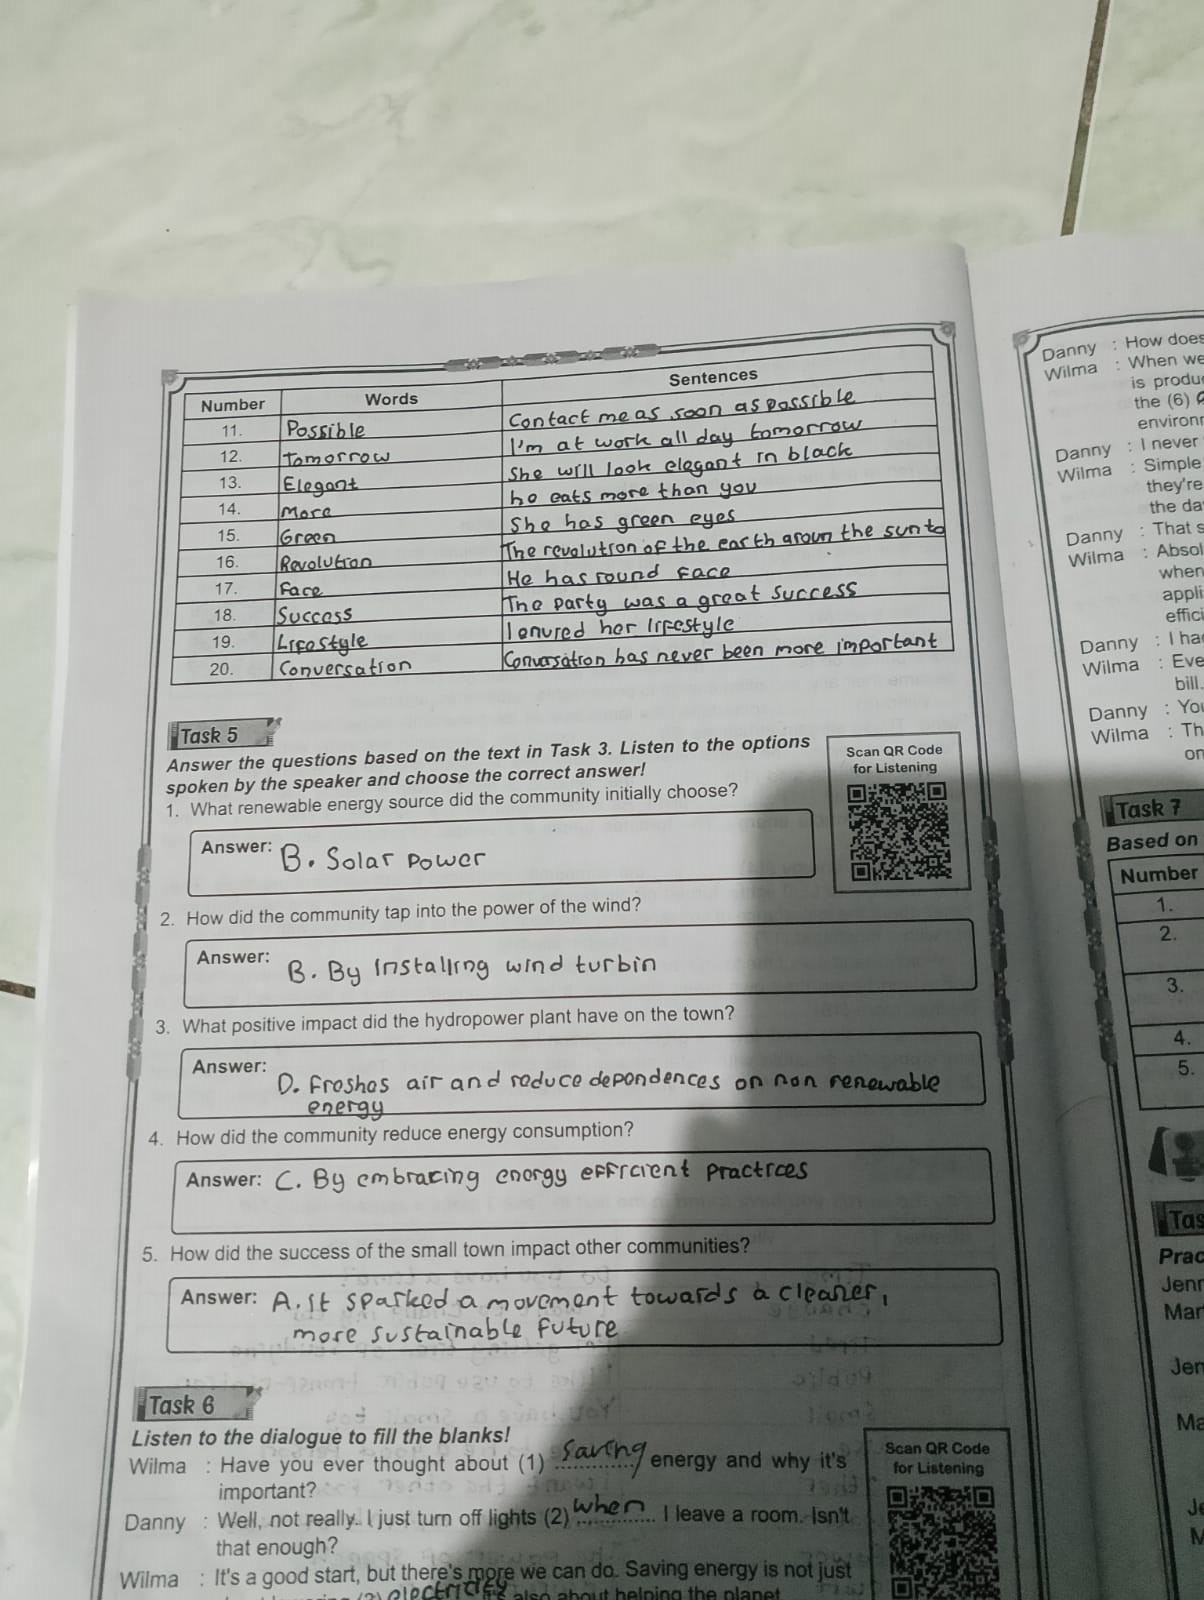 Number Words Sentences
11. Possible Contact me as soon as possible
12. Tomorrow I'm at work all day tomorrow
13. Elegant She will look elegant in black
14. More he eats more than you
15. Green She has green eyes
16. Revolution The revolution of the earth aroun the sun to
17. Face He has round face
18. Success The party was a great success
19. Lifestyle I enured her lifestyle
20. Conversation Conversation has never been more important
Task 5
Answer the questions based on the text in Task 3. Listen to the options
spoken by the speaker and choose the correct answer!
Scan QR Code
for Listening
1. What renewable energy source did the community initially choose?
Answer: B. Solar Power
2. How did the community tap into the power of the wind?
Answer: B. By installing wind turbin
3. What positive impact did the hydropower plant have on the town?
Answer: D. Freshes air and reduce dependences on non renewable
energy
4. How did the community reduce energy consumption?
Answer: C. By embracing energy efficient practices
5. How did the success of the small town impact other communities?
Answer: A. It sparked a movement towards a cleaner,
more sustainable future
Task 6
Listen to the dialogue to fill the blanks!
Wilma : Have you ever thought about (1) saving energy and why it's
important?
Danny : Well, not really. I just turn off lights (2) when I leave a room. Isn't
that enough?
Wilma : It's a good start, but there's more we can do. Saving energy is not just
electricity also about helping the planet
Scan QR Code
for Listening
Danny : How does
Wilma : When we
is produ
the (6)
environr
Danny : I never
Wilma : Simple
they're
the da
Danny : That s
Wilma : Absol
when
appli
effici
Danny : I ha
Wilma : Eve
bill.
Danny : You
Wilma : Th
on
Task 7
Based on
Number
1.
2.
3.
4.
5.
Tas
Prac
Jenr
Mar
Jen
Ma
Je
M